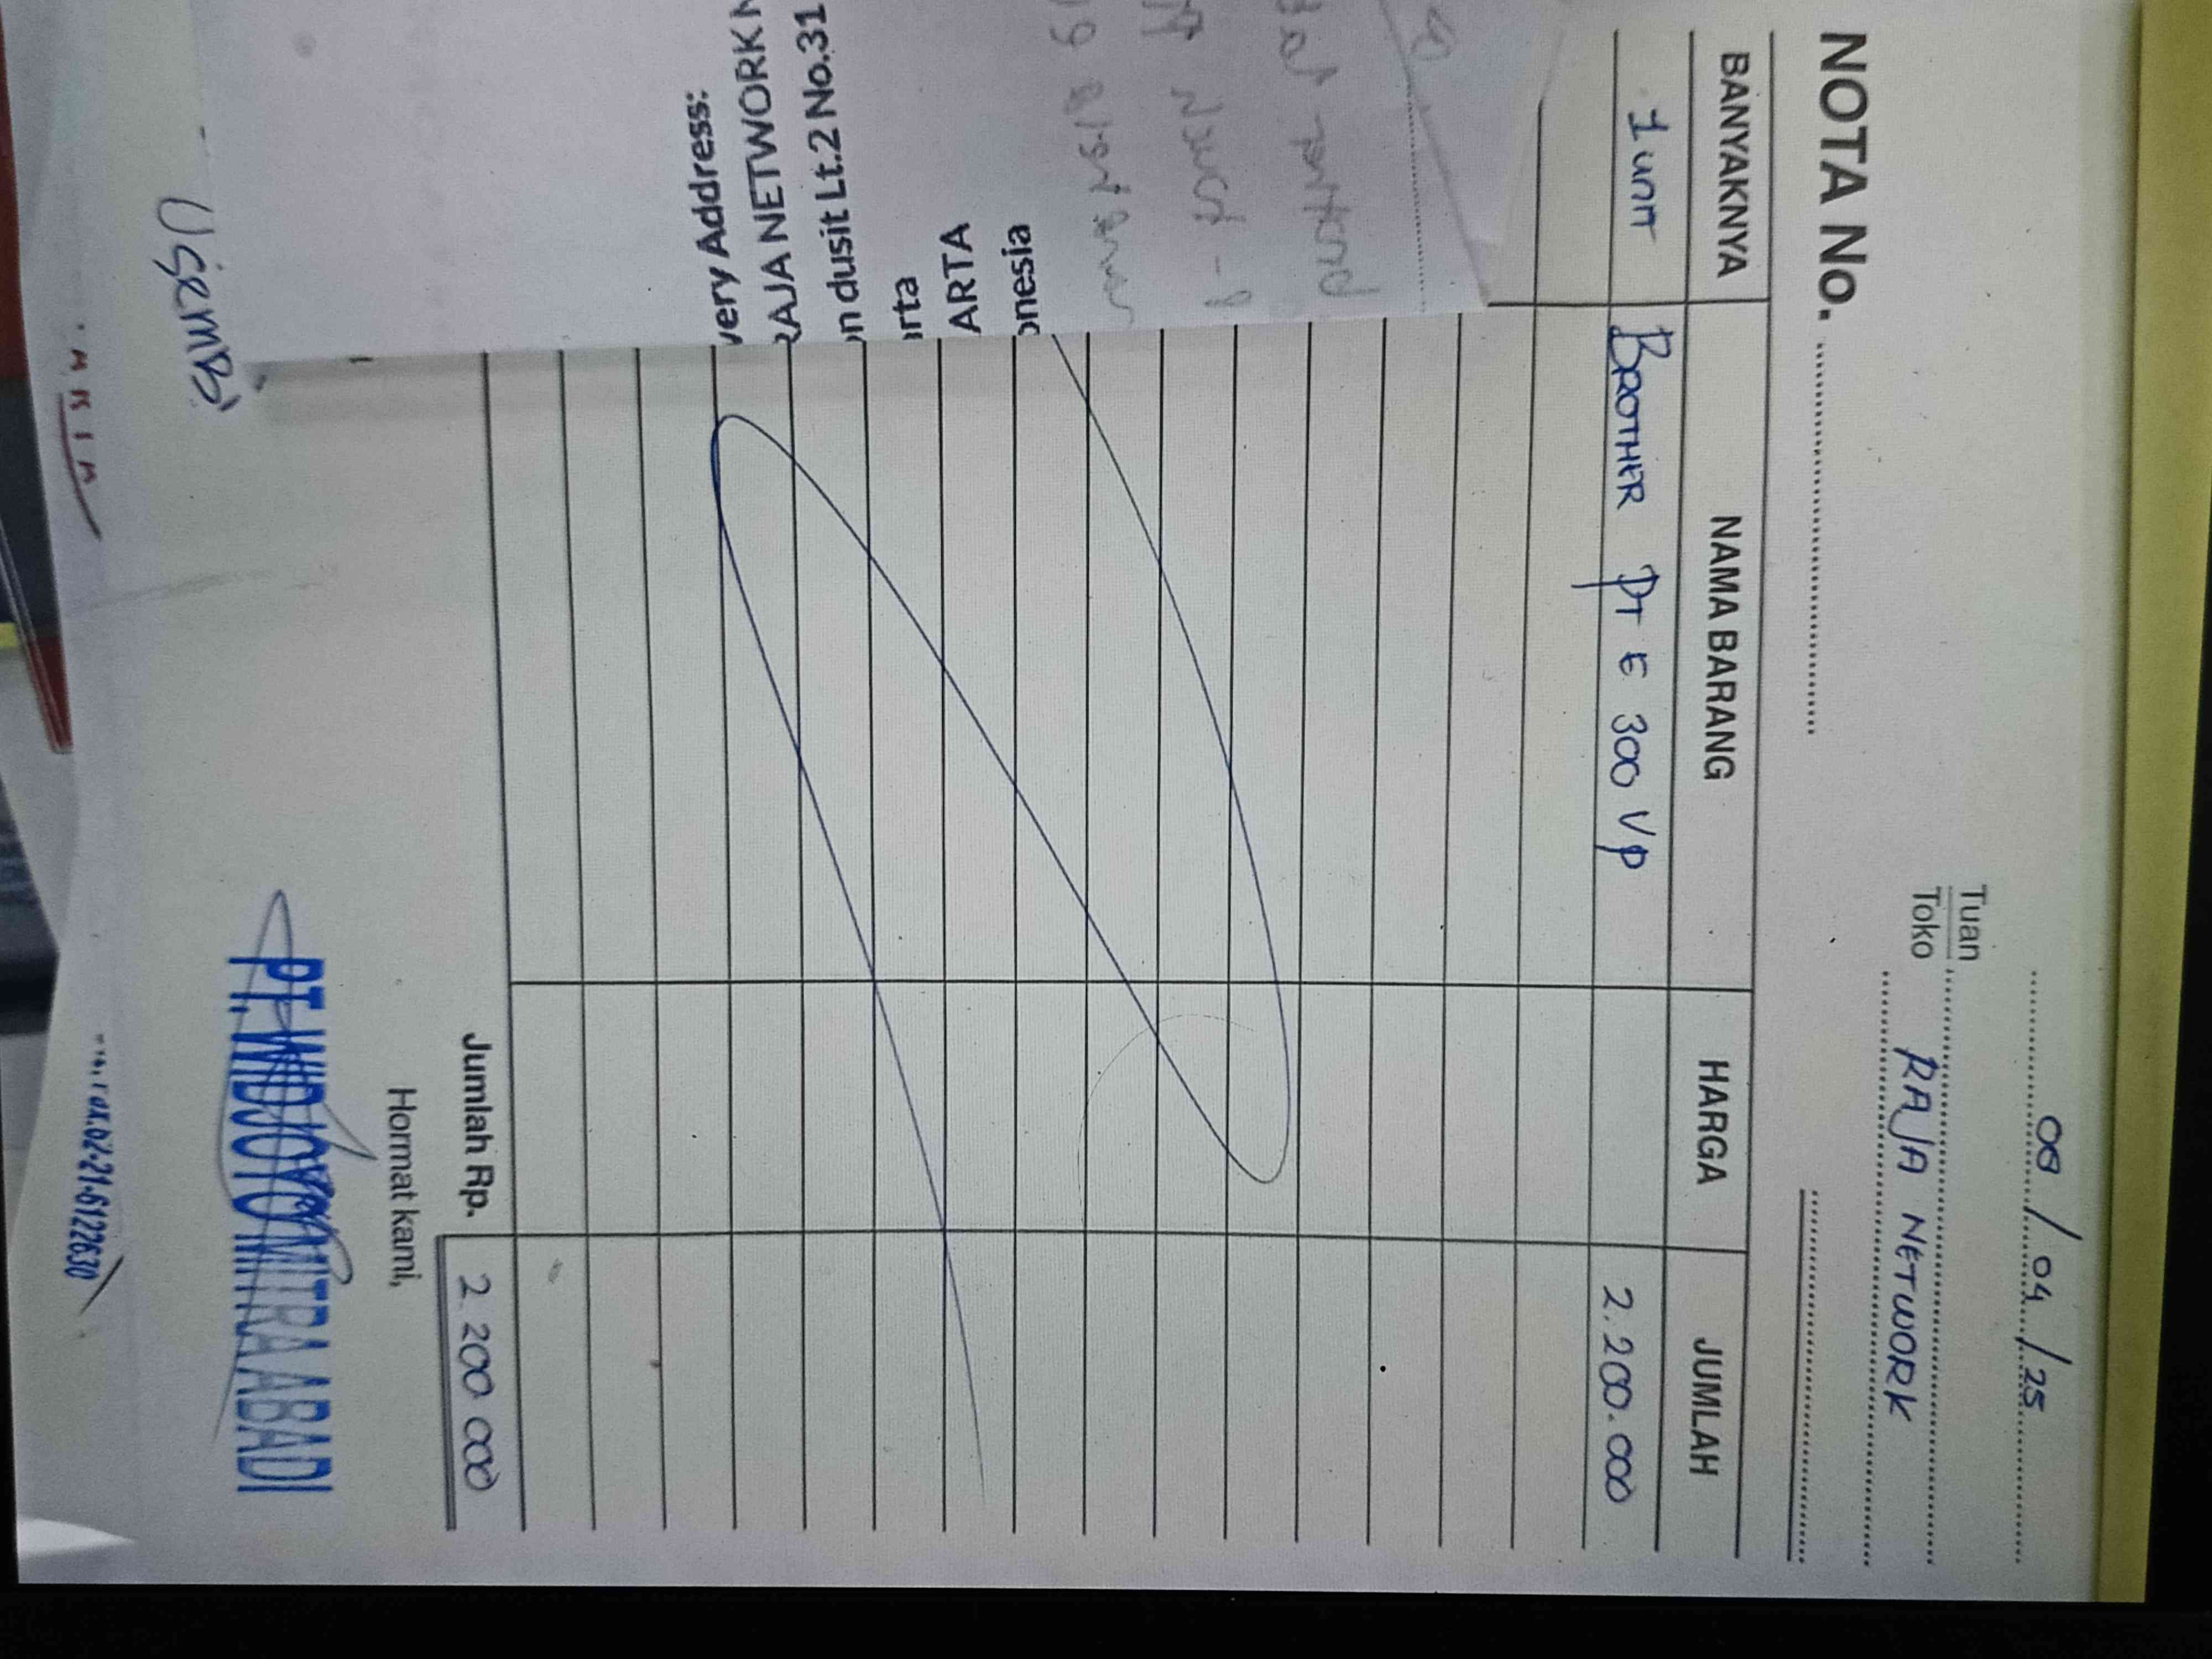 08 / 04 / 25
Tuan
Toko
RAJA NETWORK
NOTA No.
BANYAKNYA NAMA BARANG HARGA JUMLAH
1 unit BROTHER PT E 300 VP 2.200.000
very Address:
RAJA NETWORK
on dusit Lt.2 No.31
arta
ARTA
onesia
Jumlah Rp. 2.200.000
Hormat kami,
PT. WIDJOYO MITRA ABADI
02-21-6122630